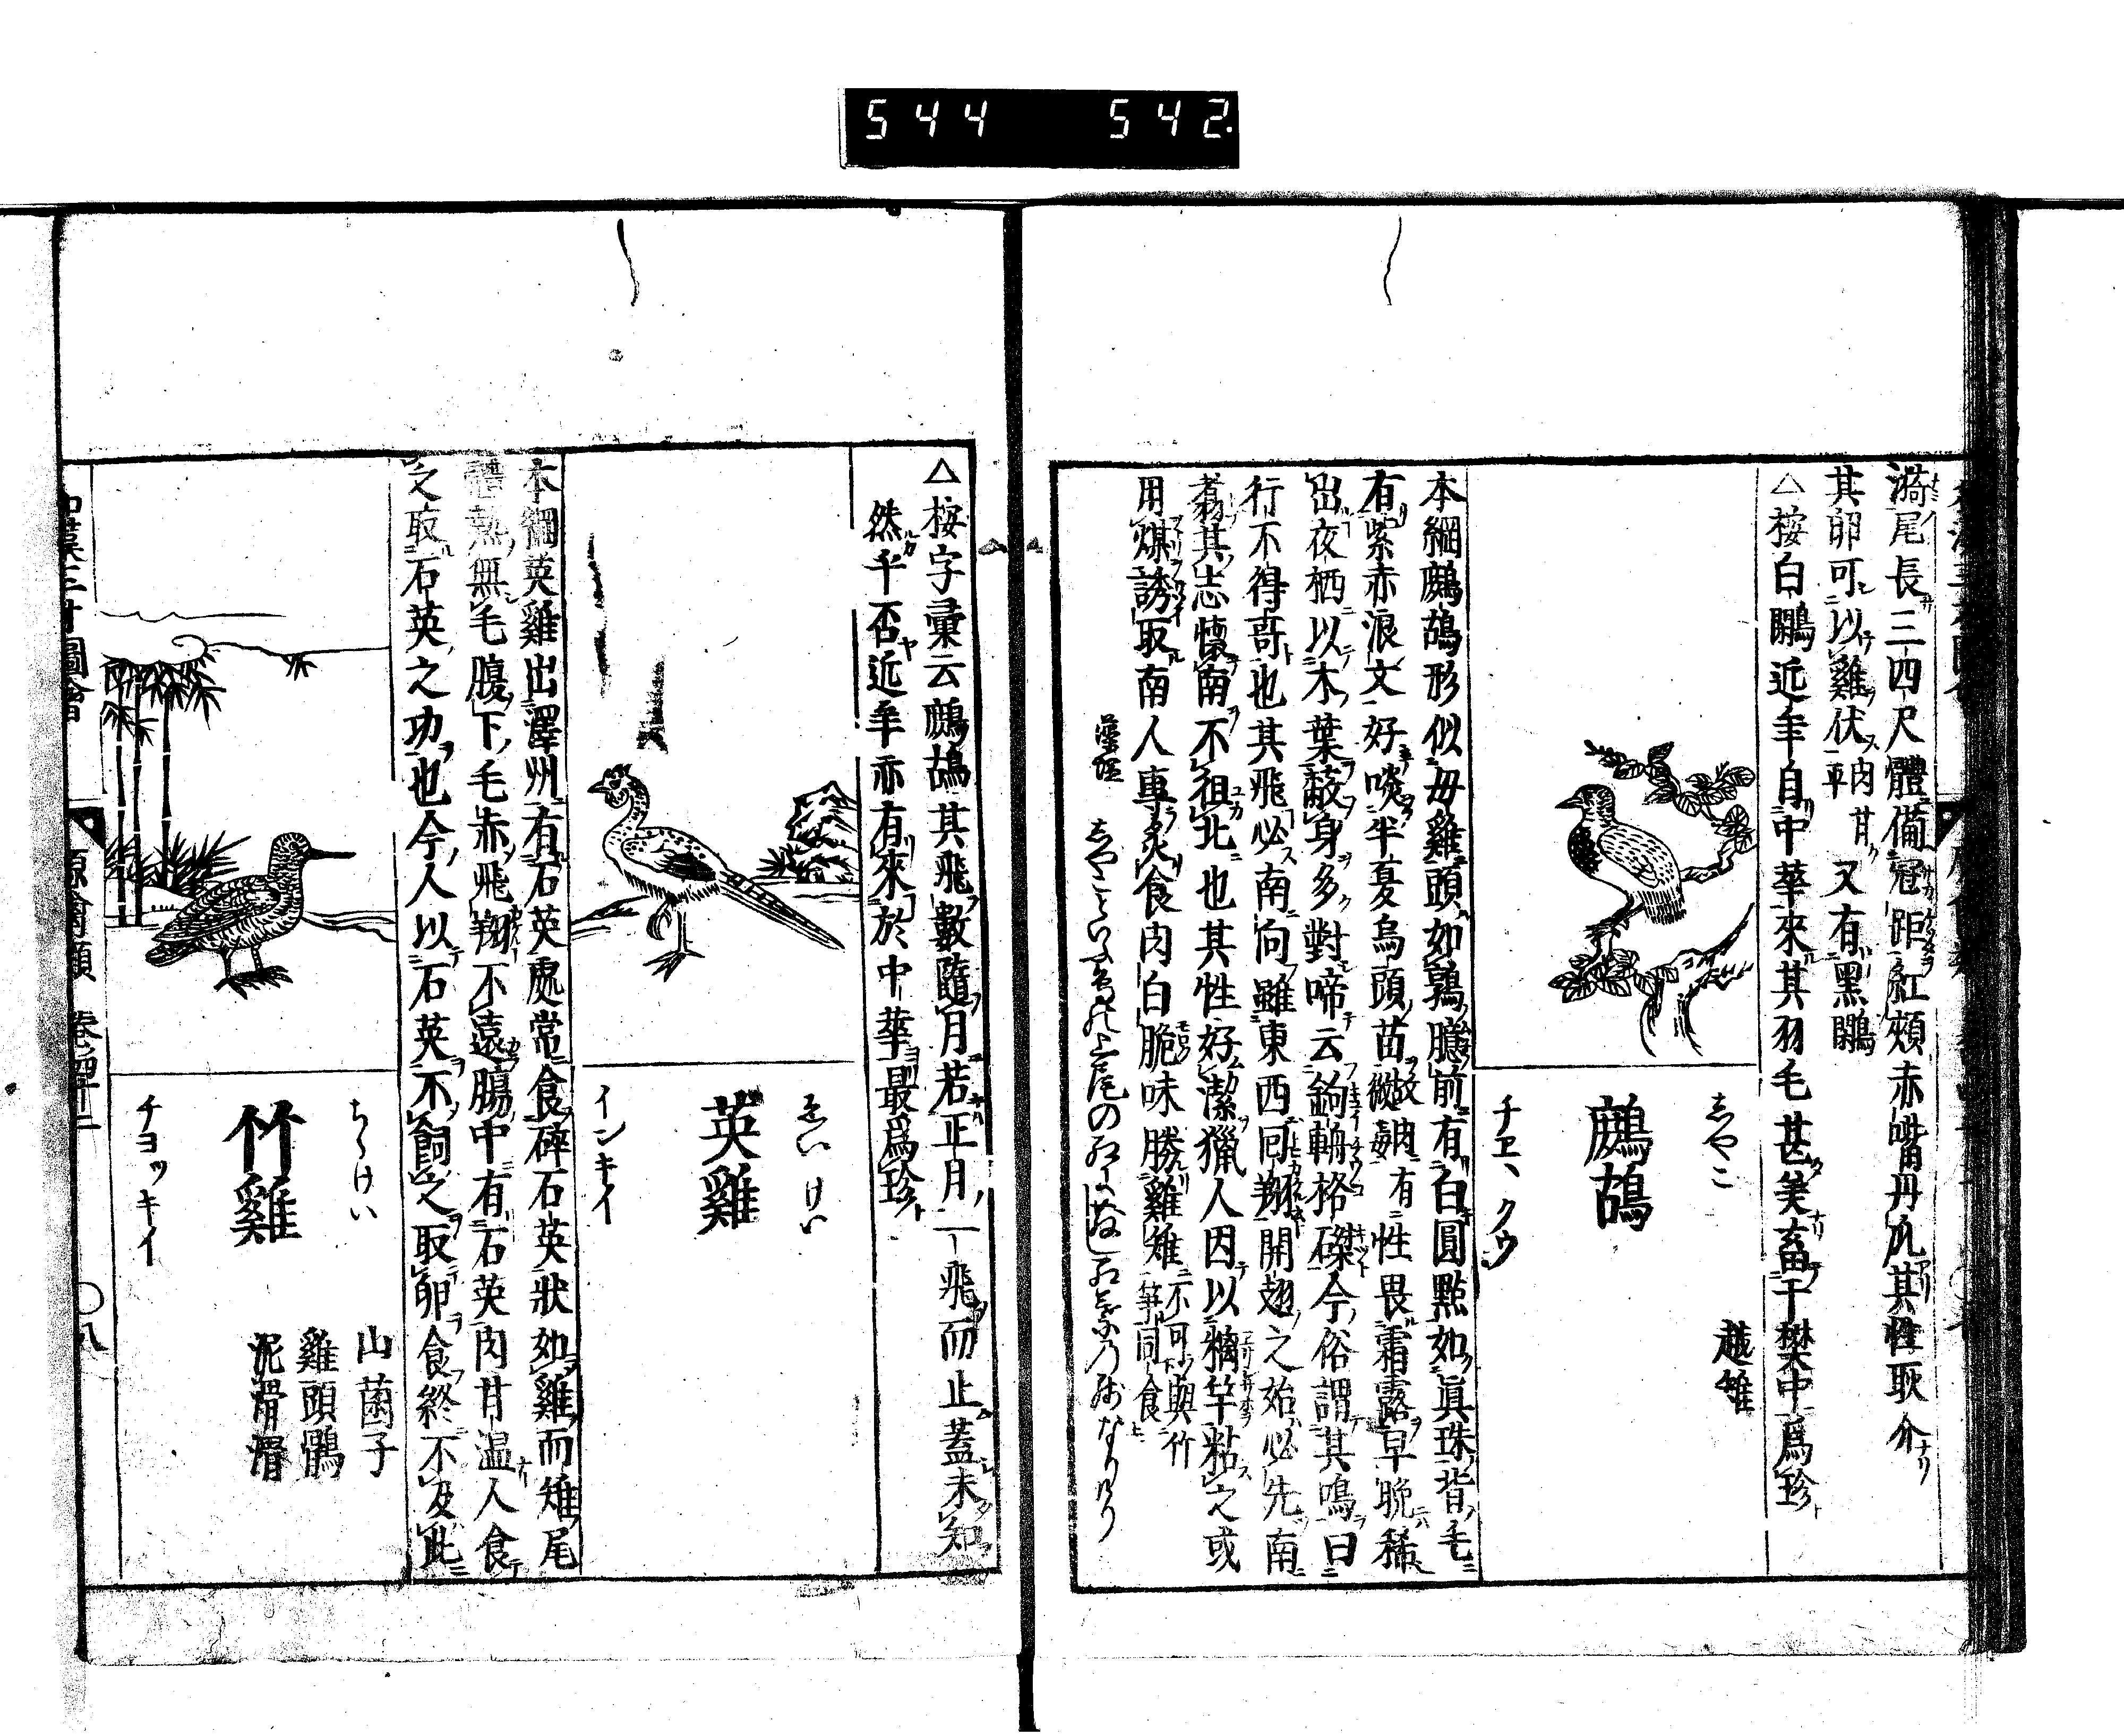 544 542
漪尾長三四尺體備冠距紅頰赤嘴丹爪其性耿介
其卵可以雞伏肉甘平又有黑鷴
△桉白鷴近年自中華來其羽毛甚美畜于樊中爲珍
しやこ
鷓鴣
チエ、クウ
越雉
本綱鷓鴣形似母雞頭如鶉臆前有白圓點如眞珠背毛
有紫赤浪文好啖半夏烏頭苗故微毒肉有性畏霜露早晩稀
出夜栖以木葉蔽身多對啼云鉤輈格磔今俗謂其鳴曰
行不得哥也其飛必南向雖東西回翔開翅之始必先南
翥其志懷南不徂北也其性好潔獵人因以𪎭竿粘之或
用媒誘取南人專炙食肉白脆味勝雞雉不可與竹笋同食
△桉字彙云鷓鴣其飛數隨月若正月一飛而止蓋未知
然乎否近年亦有來於中華最爲珍
ゑいけい
英雞
インキイ
本綱英雞出澤州有石英處常食碎石英狀如雞而雉尾
體熱無毛腹下毛赤飛翔不遠腸中有石英肉甘温人食
之取石英之功也今人以石英不飼之取卵食終不及此
ちくけい
竹雞
チヨッキイ
山菌子
雞頭鶻
泥滑滑
和漢三才圖會 原禽類 卷四十二 〇八